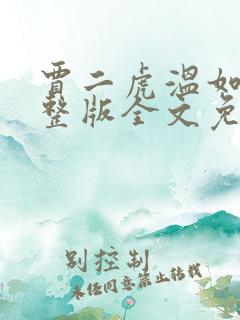 贾二虎温如
整版全文免
别控制
未经同意禁止转载